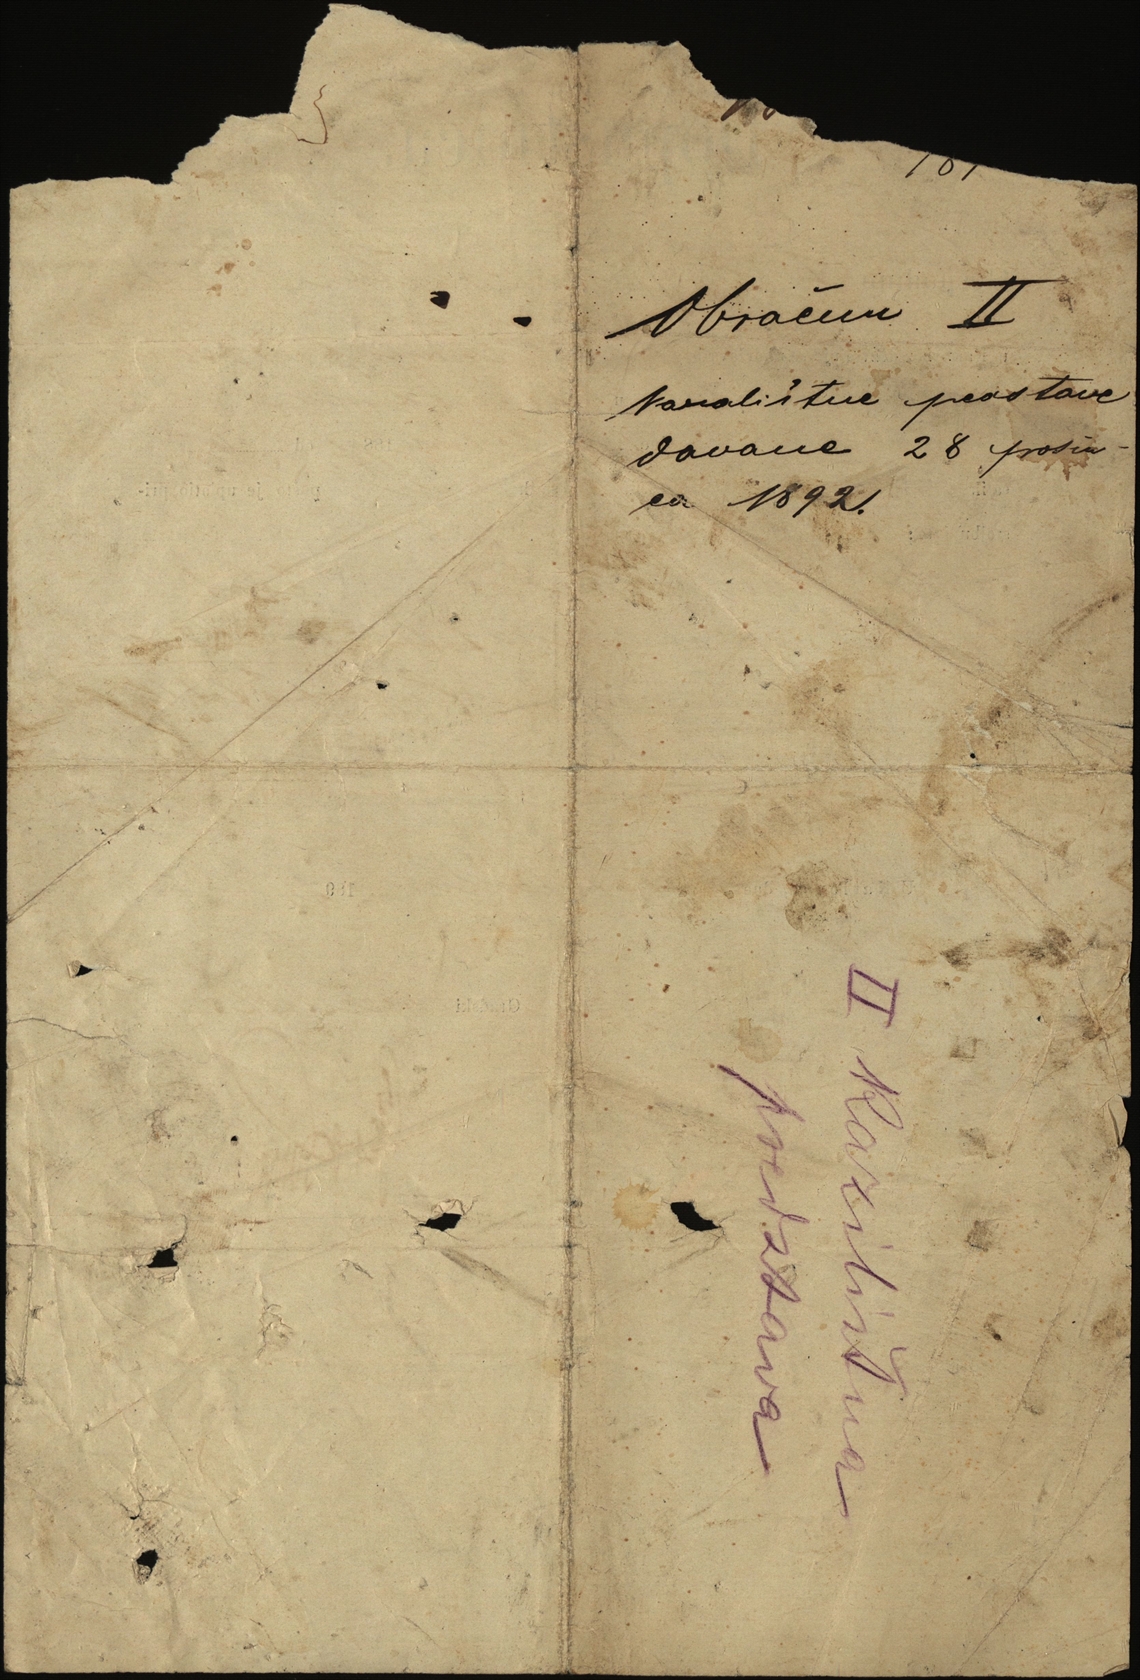 Obračun II
kazalištne predstave
davane 28 prosin-
ca 1892.
II Kazilištna
predstava